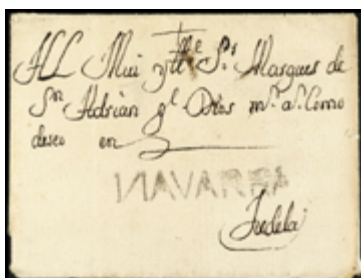 AL Mui Ylle Sr Marques de
Sn Adrian gl Dios ms as Como
deseo en
NAVARRA
Tudela